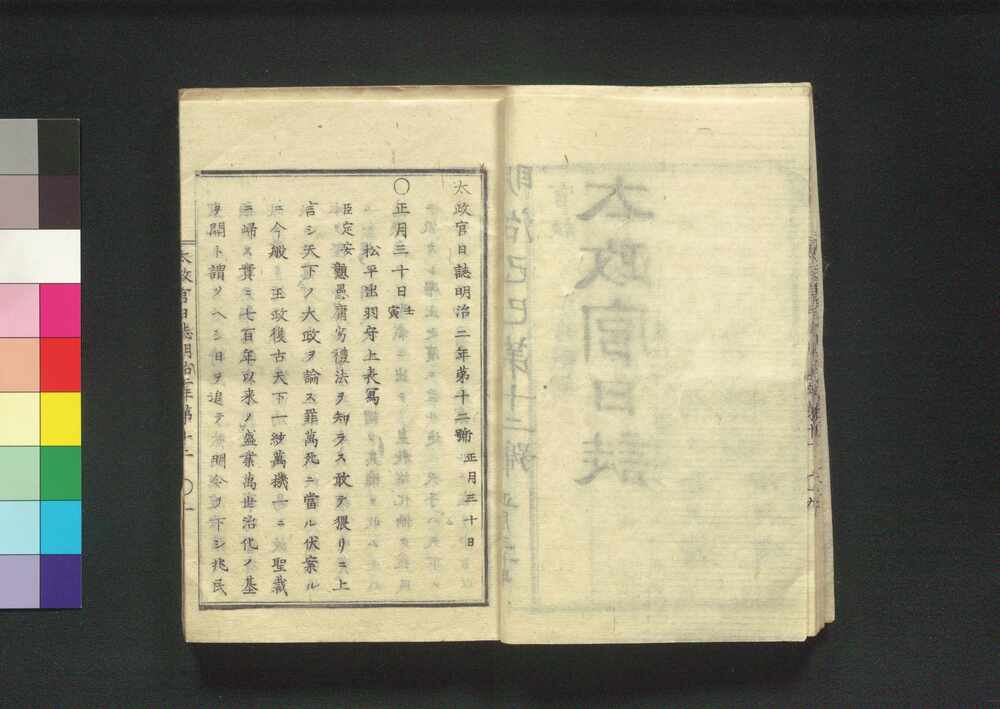 太政官日誌明治二年第十二號 正月三十日
〇正月三十日 壬寅
松平出羽守上表寫
臣定安惷愚庸劣禮法ヲ知ラス敢テ猥リニ上
言シ天下ノ大政ヲ論ス罪萬死ニ當ル伏案ル
ニ今般 王政復古天下一紗萬機一ニ 聖裁
ニ歸ス實ニ七百年以来ノ盛業萬世治化ノ基
ヲ開ト謂ツヘシ日ヲ追テ 明令ヲ下シ兆民
太政官日誌明治二年第十二 〇一
太政官日誌
明治己巳第十二號